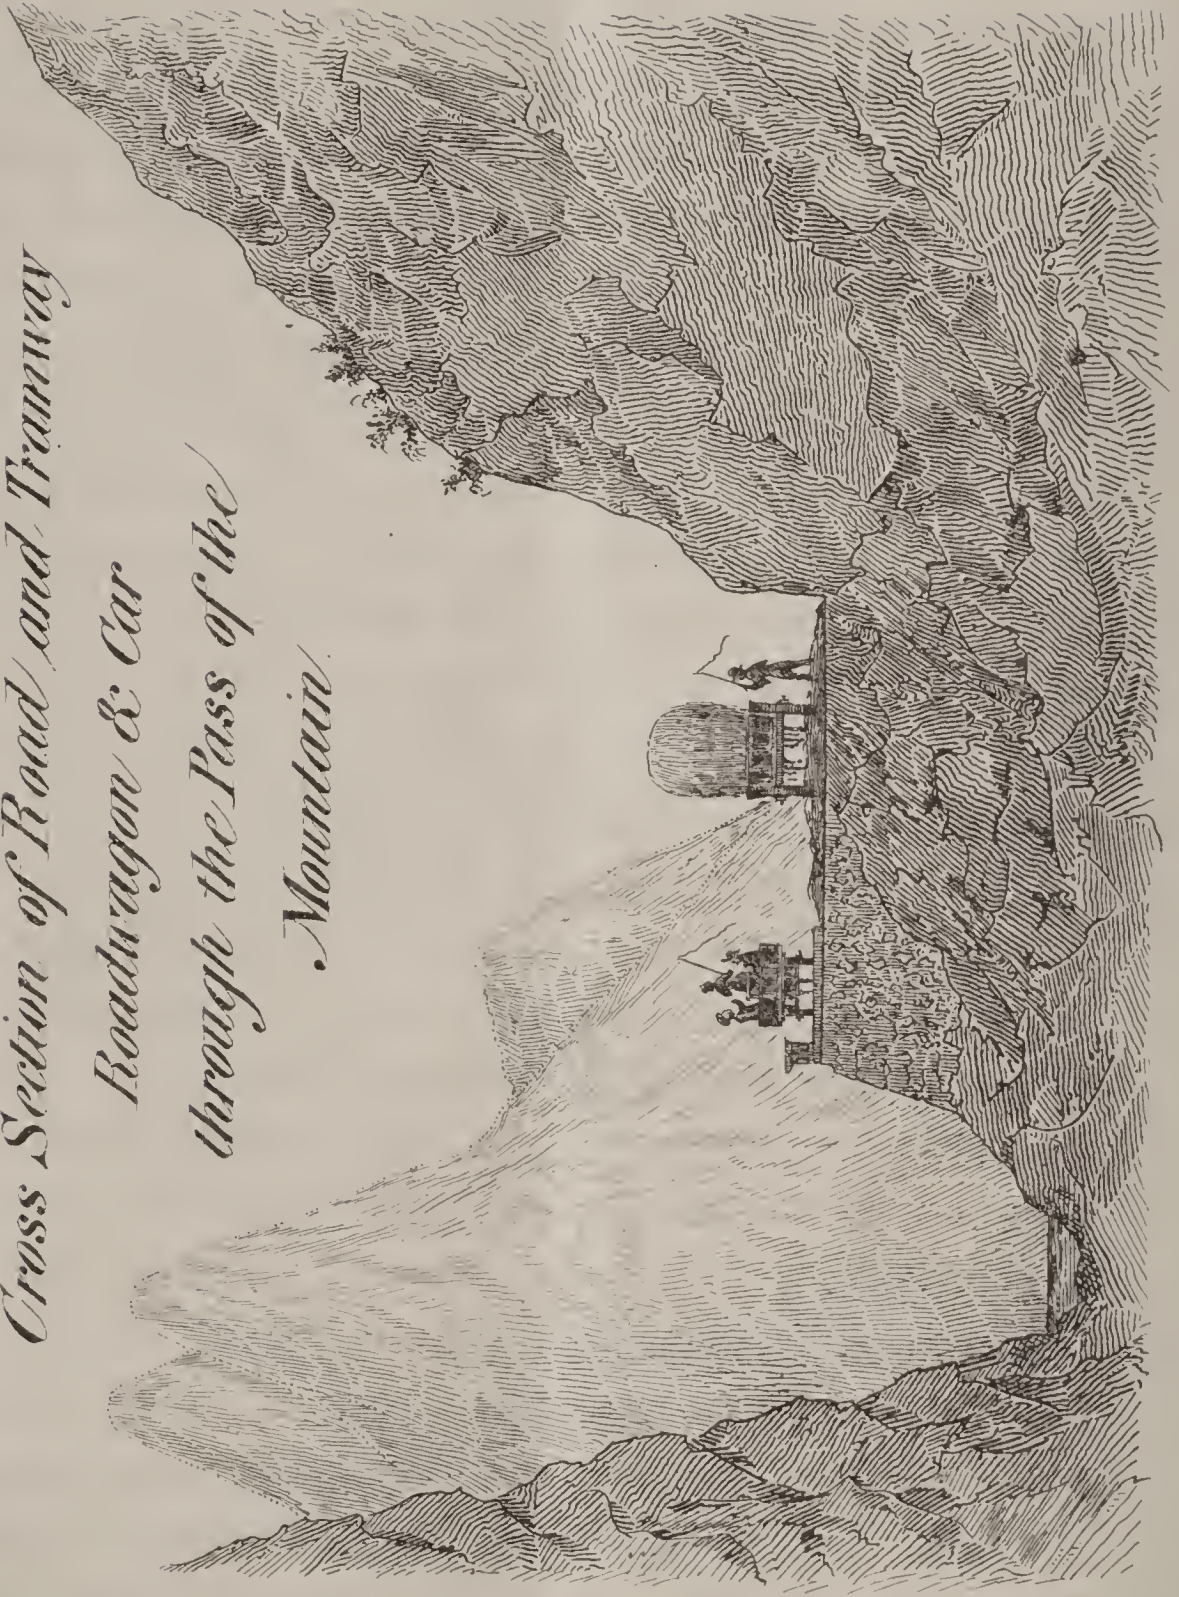 Cross Section of Road and Tramway
Roadwagon & Car
through the Pass of the
Mountain.